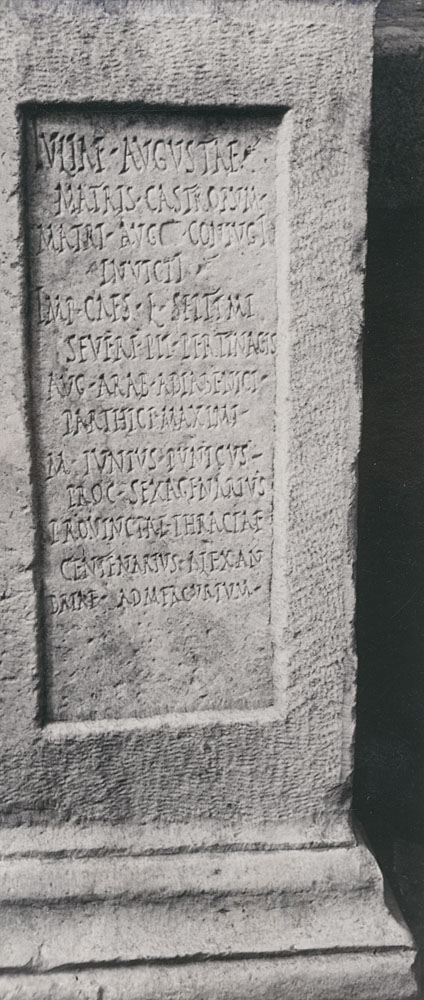 IVLIAE · AVGVSTAE
MATRIS · CASTRORVM ·
MATRI · AVGG CONIVGI
INVICTI
IMP · CAES · L · SEPTIMI
SEVERI · PII · PERTINACIS
AVG · ARAB · ADIABENICI ·
PARTHICI · MAXIMI ·
M · IVNIVS · PVNICVS ·
PROC · SEXAGENARIVS
PROVINCIAE · THRACIAE
CENTENARIVS · ALEXAN
DRIAE · AD MERCVRIVM ·